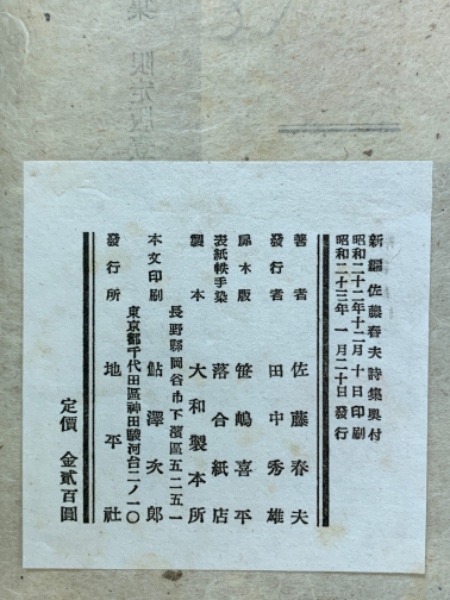 新編佐藤春夫詩集奥付
昭和二十二年十二月十日印刷
昭和二十三年一月二十日發行
著者 佐藤春夫
發行者 田中秀雄
扉木版 笹嶋喜平
表紙帙手染 落合紙店
製本 大和製本所
長野縣岡谷市下濱區五二五一
本文印刷 鮎澤次郎
東京都千代田區神田駿河台二ノ一〇
發行所 地平社
定價 金貳百圓
限定版